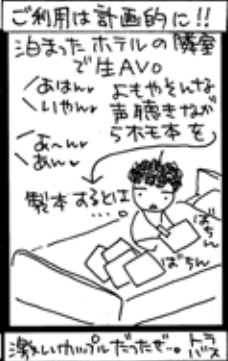 ご利用は計画的に!!
泊まったホテルの隣室
で生AV。
あはん♥
いやん♥
あ〜ん♥
あん♥
よもやそんな
声聴きなが
らホモ本を
製本するとは
…。
ばちん
ばちん
激しいカップルだったぜ…。トラ
バス